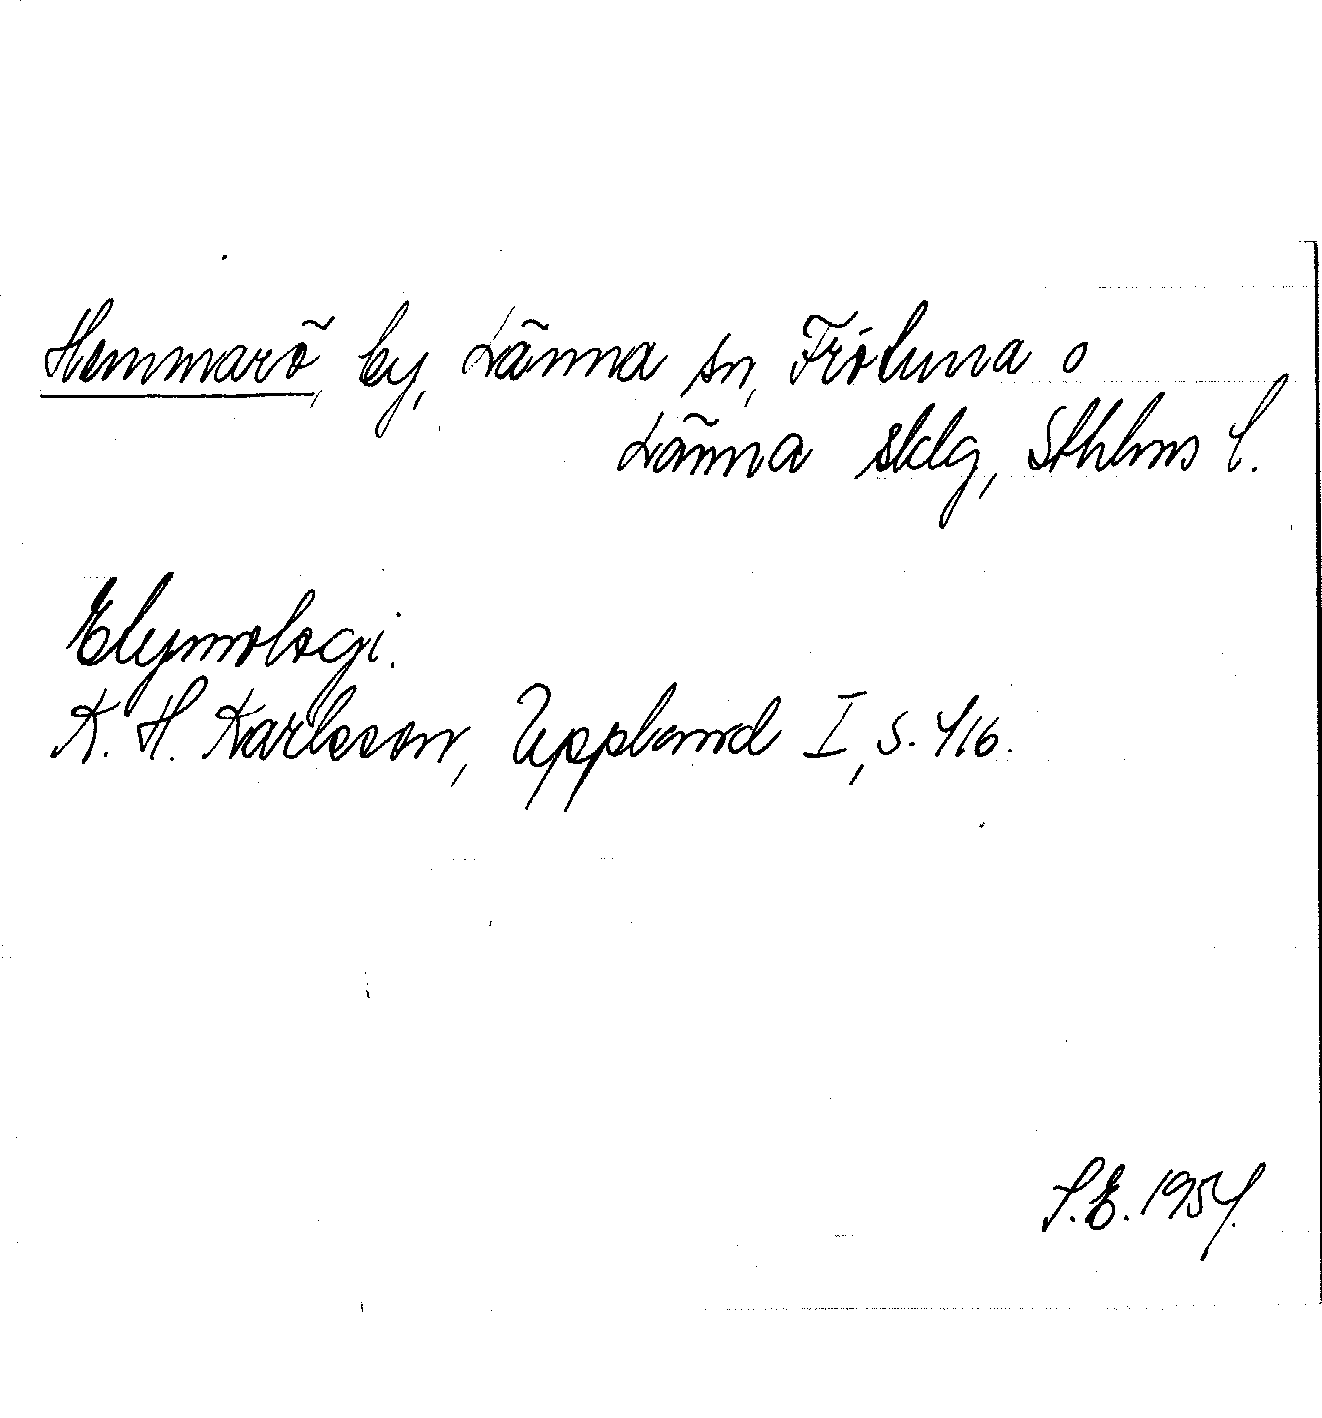 Hemmarö, by, Länna sn, Frötuna o
Länna skdg, Sthlms l.
Etymologi.
K. H. Karlsson, Uppland I, s. 416.
S.E. 1954.